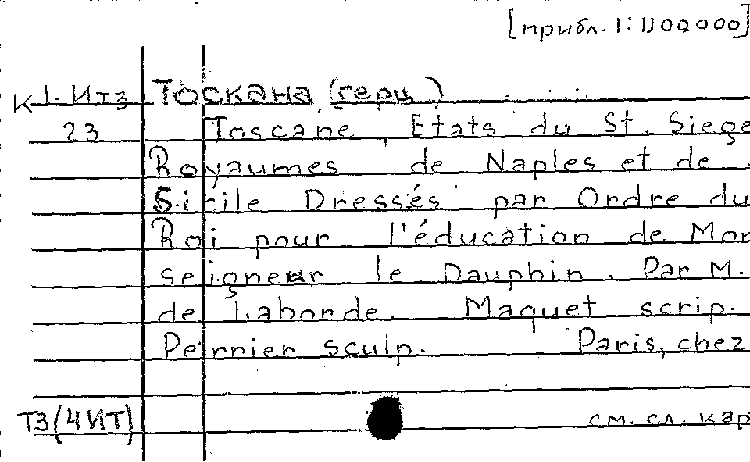 [прибл. 1:1100000]
К 1-Ит3 ТОСКАНА (герц.)
23 Toscane, Etats du St. Siege
Royaumes de Naples et de
Sicile Dressés par Ordre du
Roi pour l'éducation de Mon
seigneur le Dauphin. Par M.
de Laborde. Maquet scrip.
Perrier sculp. Paris, chez
Т3(4ИТ) см. сл. кар